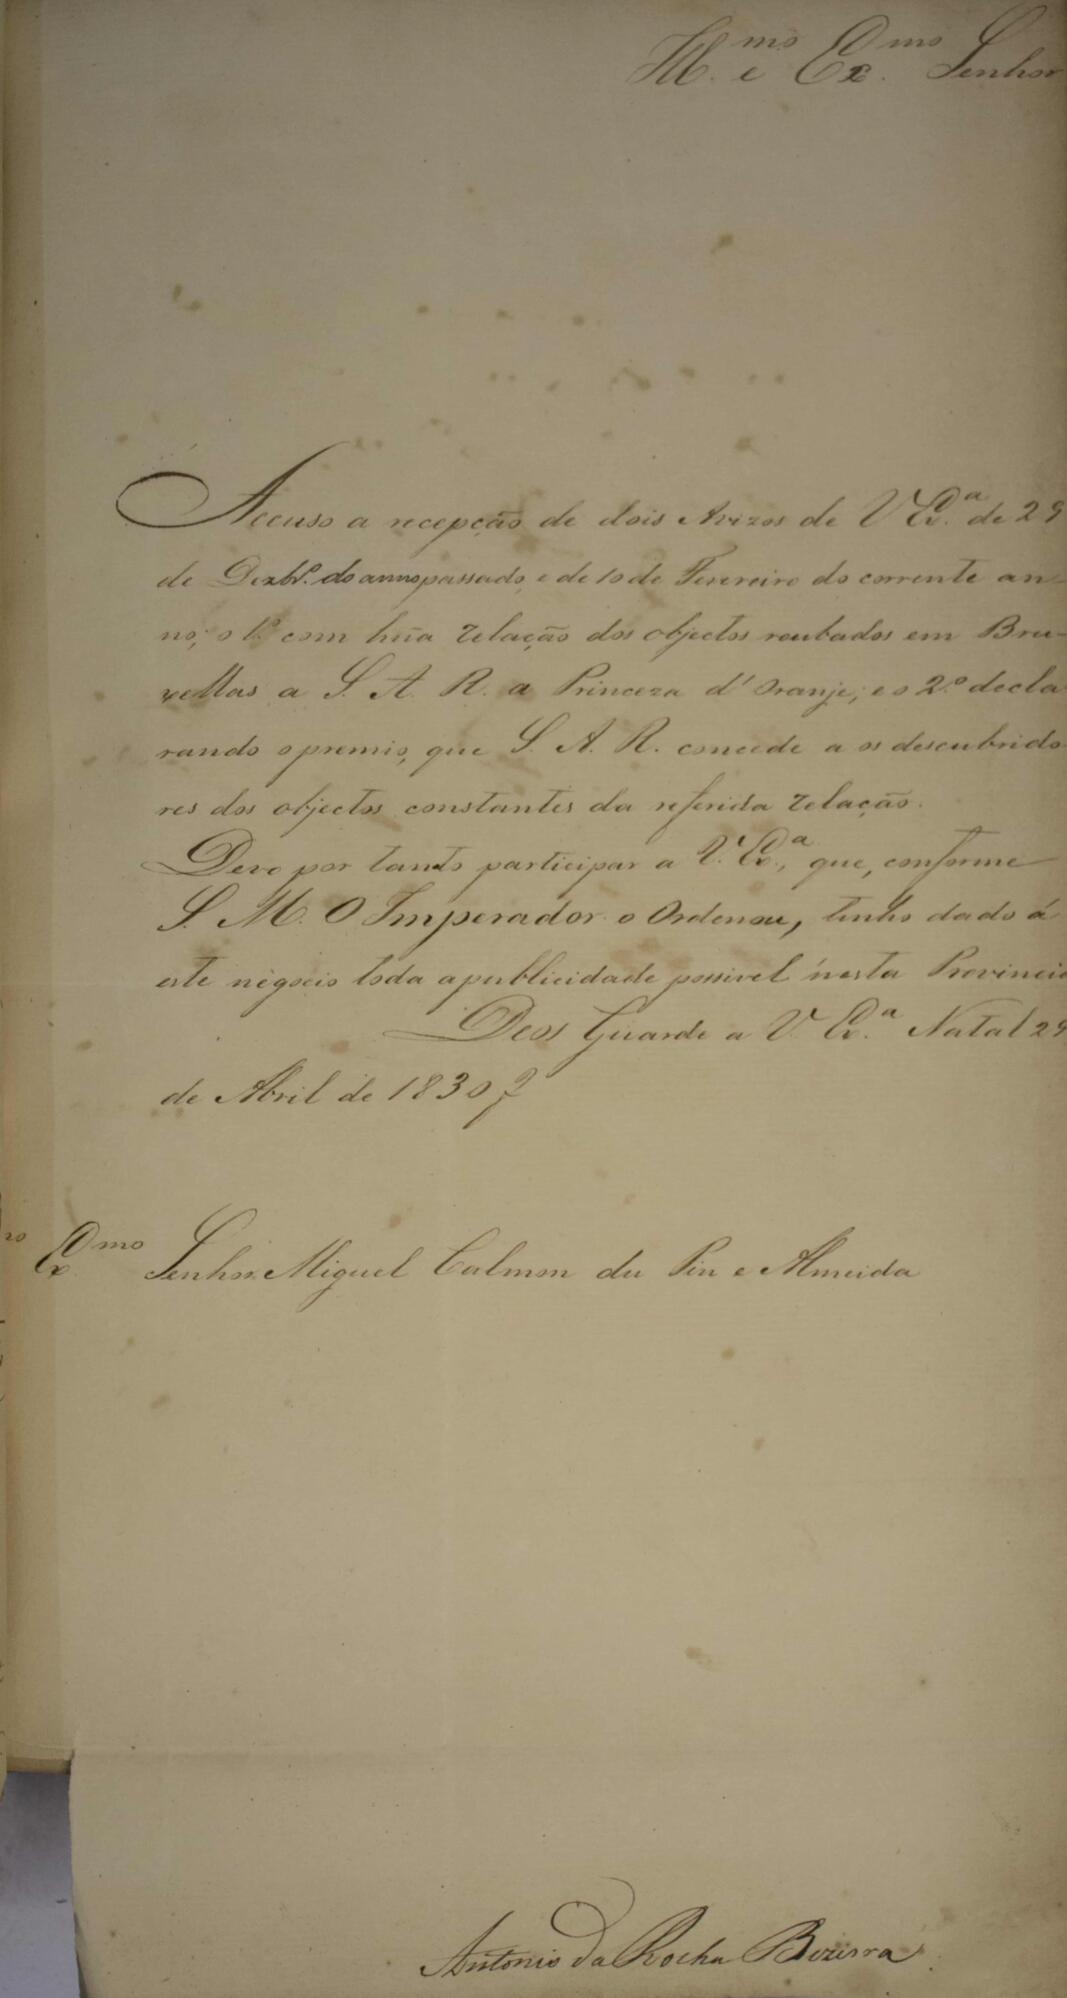 Ill.mo e Ex.mo Senhor
Accuso a recepção de dois Avizos de V Ex.a de 29
de Dezbr.o do anno passado, e de 10 de Fevereiro do corrente an-
no; o 1.o com hũa relação dos objectos roubados em Bru-
xellas a S. A. R. a Princeza d'Oranje; e o 2.o decla-
rando o premio, que S. A. R. concede a os descubrido-
res dos objectos constantes da referida relação.
Devo por tanto participar a V. Ex.a, que, conforme
S. M. O Imperador o Ordenou, tenho dado á
este negocio toda a publicidade possivel n'esta Provincia
Deos Guarde a V. Ex.a Natal 29
de Abril de 1830
Ex.mo Senhor Miguel Calmon du Pin e Almeida
Antonio da Rocha Bezerra